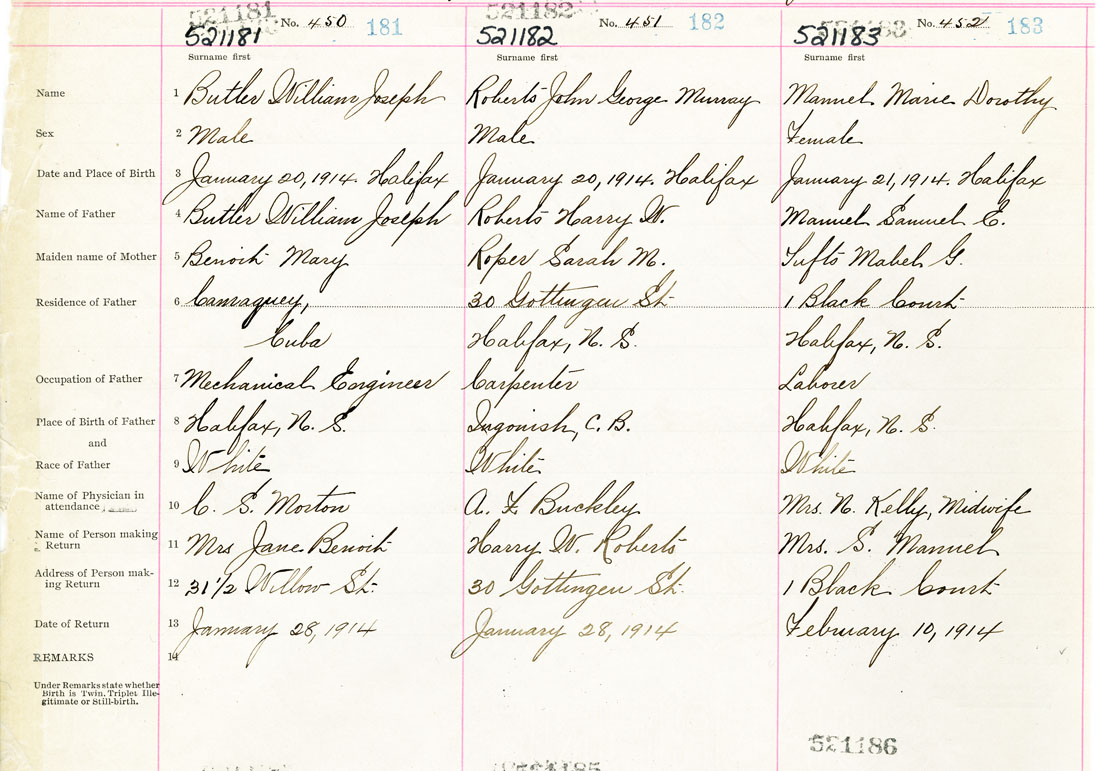 521181 No. 450 181 521182 No. 451 182 521183 No. 452 183
521181 521182 521183
Surname first Surname first Surname first
Name 1 Butler William Joseph Roberts John George Murray Manuel Marie Dorothy
Sex 2 Male Male Female
Date and Place of Birth 3 January 20, 1914. Halifax January 20, 1914. Halifax January 21, 1914. Halifax
Name of Father 4 Butler William Joseph Roberts Harry W. Manuel Samuel E.
Maiden name of Mother 5 Benoit Mary Roper Sarah M. Tufts Mabel G.
Residence of Father 6 Camaguey, 30 Gottingen St. 1 Black Court
Cuba Halifax, N. S. Halifax, N. S.
Occupation of Father 7 Mechanical Engineer Carpenter Laborer
Place of Birth of Father 8 Halifax, N. S. Ingonish, C. B. Halifax, N. S.
and
Race of Father 9 White White White
Name of Physician in
attendance 10 C. S. Morton A. F. Buckley Mrs. N. Kelly, Midwife
Name of Person making
Return 11 Mrs Jane Benoit Harry W. Roberts Mrs. S. Manuel
Address of Person mak-
ing Return 12 31 1/2 Willow St. 30 Gottingen St. 1 Black Court
Date of Return 13 January 28, 1914 January 28, 1914 February 10, 1914
REMARKS 14
Under Remarks state whether
Birth is Twin, Triplet Ille-
gitimate or Still-birth.
521186
521185